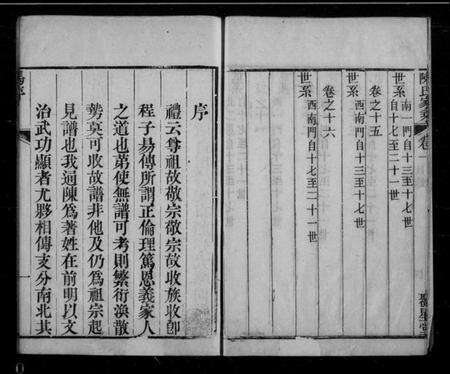 陳氏家乘 卷一
南一門自十三至十七世
世系
自十七至二十一世
卷之十五
世系
西南門自十三至十七世
卷之十六
世系
西南門自十七至二十一世
序
禮云尊祖故敬宗敬宗故收族收卽
程子易傳所謂正倫理篤恩義家人
之道也第使無譜可考則繁衍渙散
勢莫可收故譜非他及仍爲祖宗起
見譜也我逼陳爲著姓在前明以文
治武功顯者尤夥相傳支分南北其
一